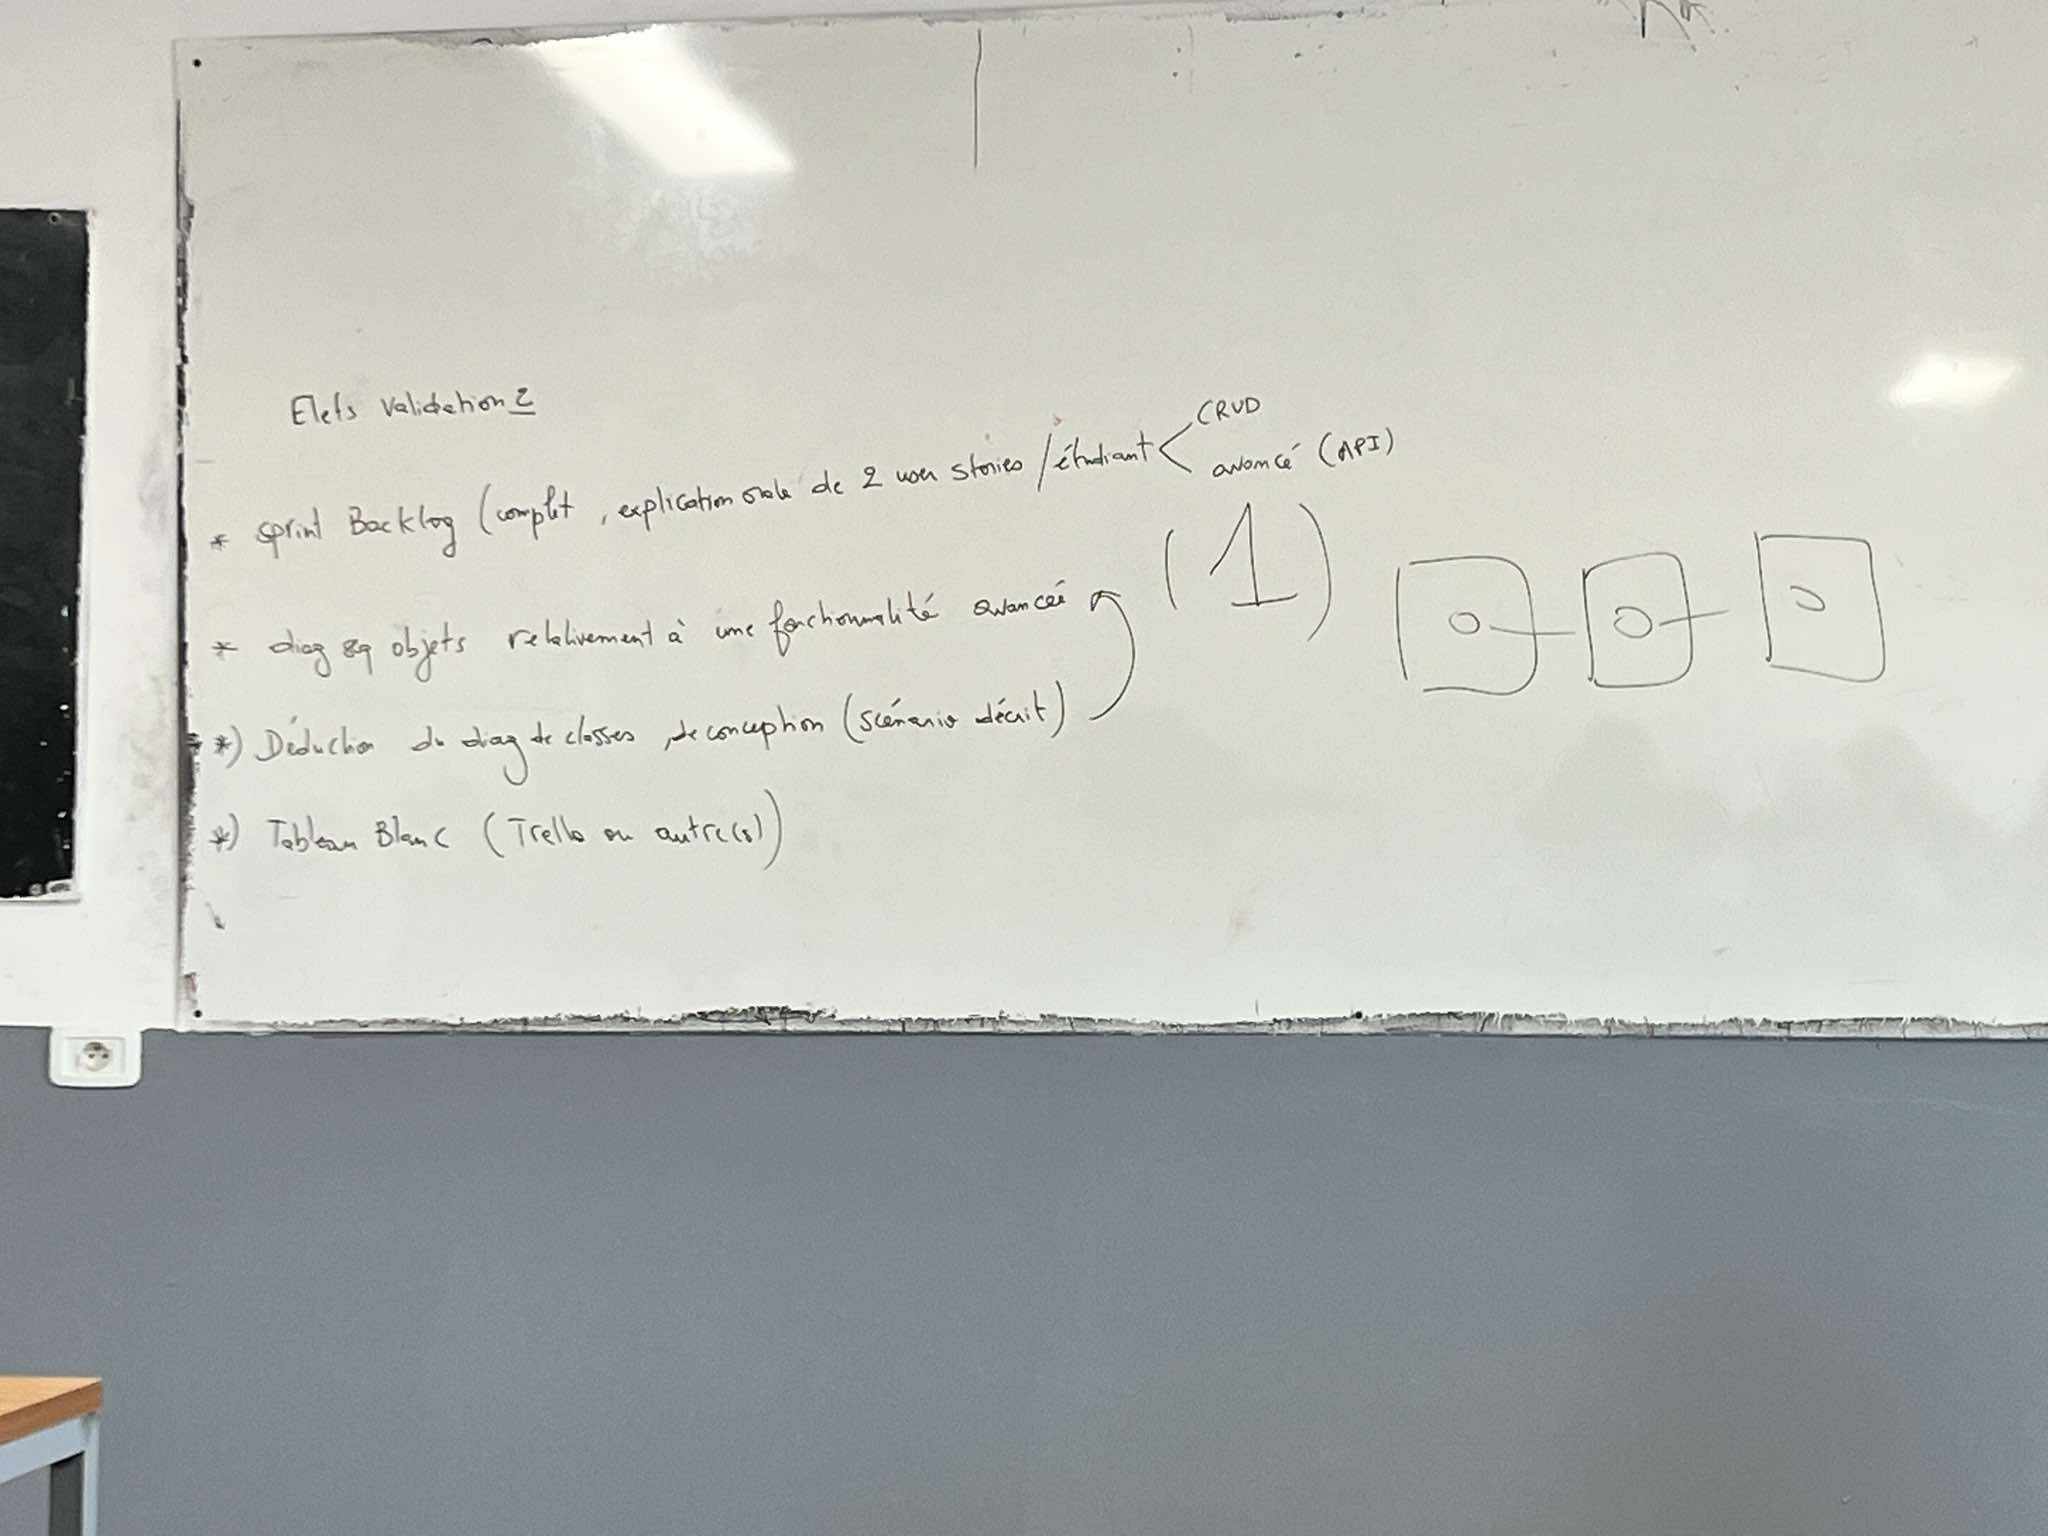 Elets validation 2
* sprint Backlog (complet, explication orale de 2 user stories / étudiant < CRUD
avancé (API)
* diag sq objets relativement à une fonctionnalité avancée (1)
*) Déduction du diag de classes de conception (scénario décrit)
*) Tableau Blanc (Trello ou autre(s))